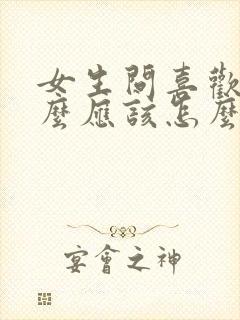 女生問喜歡
麼應該怎麼
宴會之神